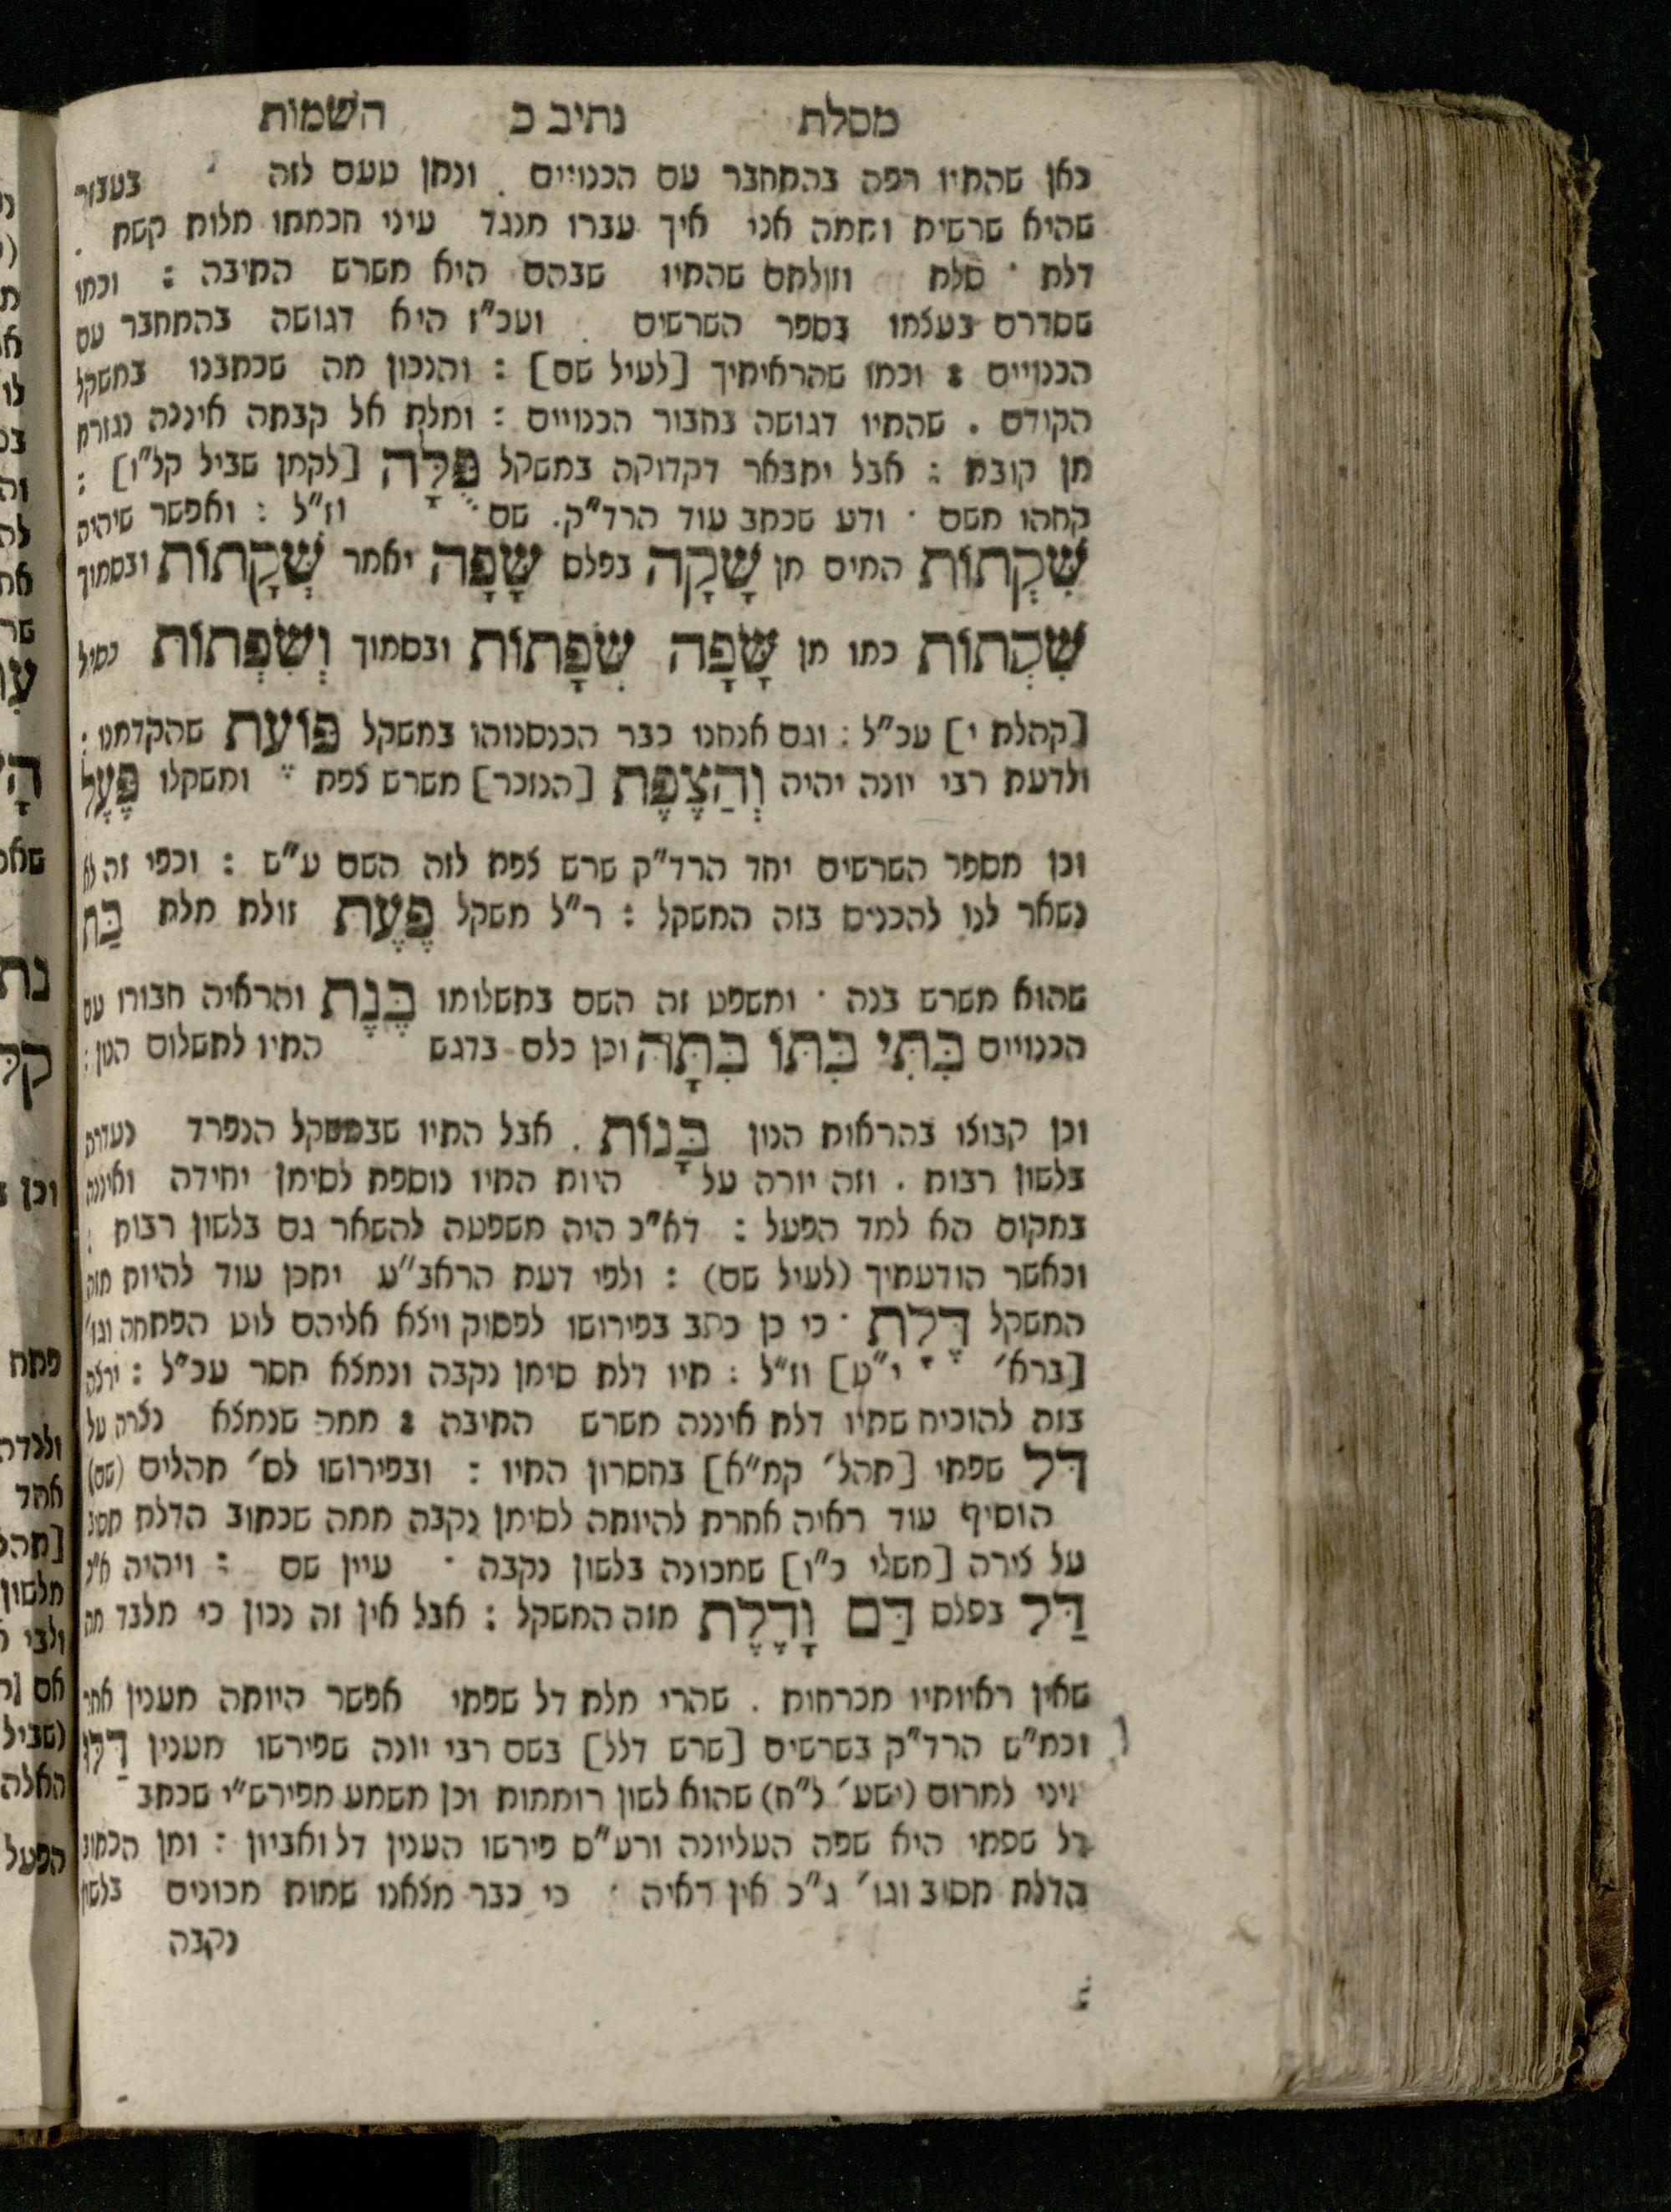 מסלת נתיב כ השמות
כאן שהתיו רפה בהתחבר עם הכנויים . ונתן טעם לזה בעבור
שהיא שרשית ותמה אני איך עברו מנגד עיני חכמתו מלות קשת .
דלת סלת וזולתם שהתיו שבהם היא משרש התיבה : וכמו
שסדרם בעצמו בספר השרשים . ועכ"ז היא דגושה בהתחבר עם
הכנויים : וכמו שהראיתיך [לעיל שם] : והנכון מה שכתבנו במשקל
הקודם . שהתיו דגושה בחבור הכנויים : ומלת אל קבתה איננה נגזרת
מן קובת : אבל יתבאר דקדוקה במשקל פֻּלָּה [לקמן שביל קל"ו] :
קחהו משם . ודע שכתב עוד הרד"ק . שם וז"ל : ואפשר שיהיה
שִׁקְתוֹת המים מן שָׁקָה בפלס שָׂפָה יאמר שְׁקָתוֹת ובסמוך
שִׁקְתוֹת כמו מן שָׂפָה שִׂפָתוֹת ובסמוך וְשִׂפְתוֹת כסיל
[קהלת י] עכ"ל : וגם אנחנו כבר הכנסנוהו במשקל פּוֹעֶת שהקדמנו :
ולדעת רבי יונה יהיה וְהַצֶּפֶת [הנזכר] משרש צפת ומשקלו פֶּעֶל
וכן מספר השרשים יחד הרד"ק שרש צפת לזה השם ע"ש : וכפי זה לא
נשאר לנו להכניס בזה המשקל : ר"ל משקל פֶּעֶת זולת מלת בַּת
שהוא משרש בנה . ומשפט זה השם בתשלומו בֶּנֶת והראיה חבורו עם
הכנויים בִּתִּי בִּתּוֹ בִּתָּהּ וכן כלם בדגש התיו לתשלום הנון :
וכן קבוצו בהראות הנון בָּנוֹת . אבל התיו שבמשקל הנפרד נעדרת
בלשון רבות . וזה יורה על היות התיו נוספת לסימן יחידה ואיננה
במקום הא למד הפעל : דא"כ היה משפטה להשאר גם בלשון רבות :
וכאשר הודעתיך (לעיל שם) : ולפי דעת הראב"ע יתכן עוד להיות מזה
המשקל דֶּלֶת . כי כן כתב בפירושו לפסוק ויצא אליהם לוט הפתחה וגו'
[ברא' י"ט] וז"ל : תיו דלת סימן נקבה ונמצא חסר עכ"ל : ירצה
בזה להוכיח שתיו דלת איננה משרש התיבה : ממה שנמצא נצרה על
דל שפתי [תהל' קמ"א] בחסרון התיו : ובפירושו לס' תהלים (שם)
הוסיף עוד ראיה אחרת להיותה לסימן נקבה ממה שכתוב הדלת תסוב
על צירה [משלי כ"ו] שמכונה בלשון נקבה . עיין שם : ויהיה א"כ
דַּל בפלס דַּם וָדֶלֶת מזה המשקל : אבל אין זה נכון כי מלבד מה
שאין ראיותיו מכרחות . שהרי מלת דל שפתי אפשר היותה מענין אחר
וכמ"ש הרד"ק בשרשים [שרש דלל] בשם רבי יונה שפירשו מענין דַּלּוּ
עיני למרום (ישע' ל"ח) שהוא לשון רוממות וכן משמע מפירש"י שכתב
דל שפתי היא שפה העליונה ורע"ם פירשו הענין דל ואביון : ומן הכתוב
הדלת תסוב וגו' ג"כ אין ראיה . כי כבר מצאנו שמות מכונים בלשון
נקבה